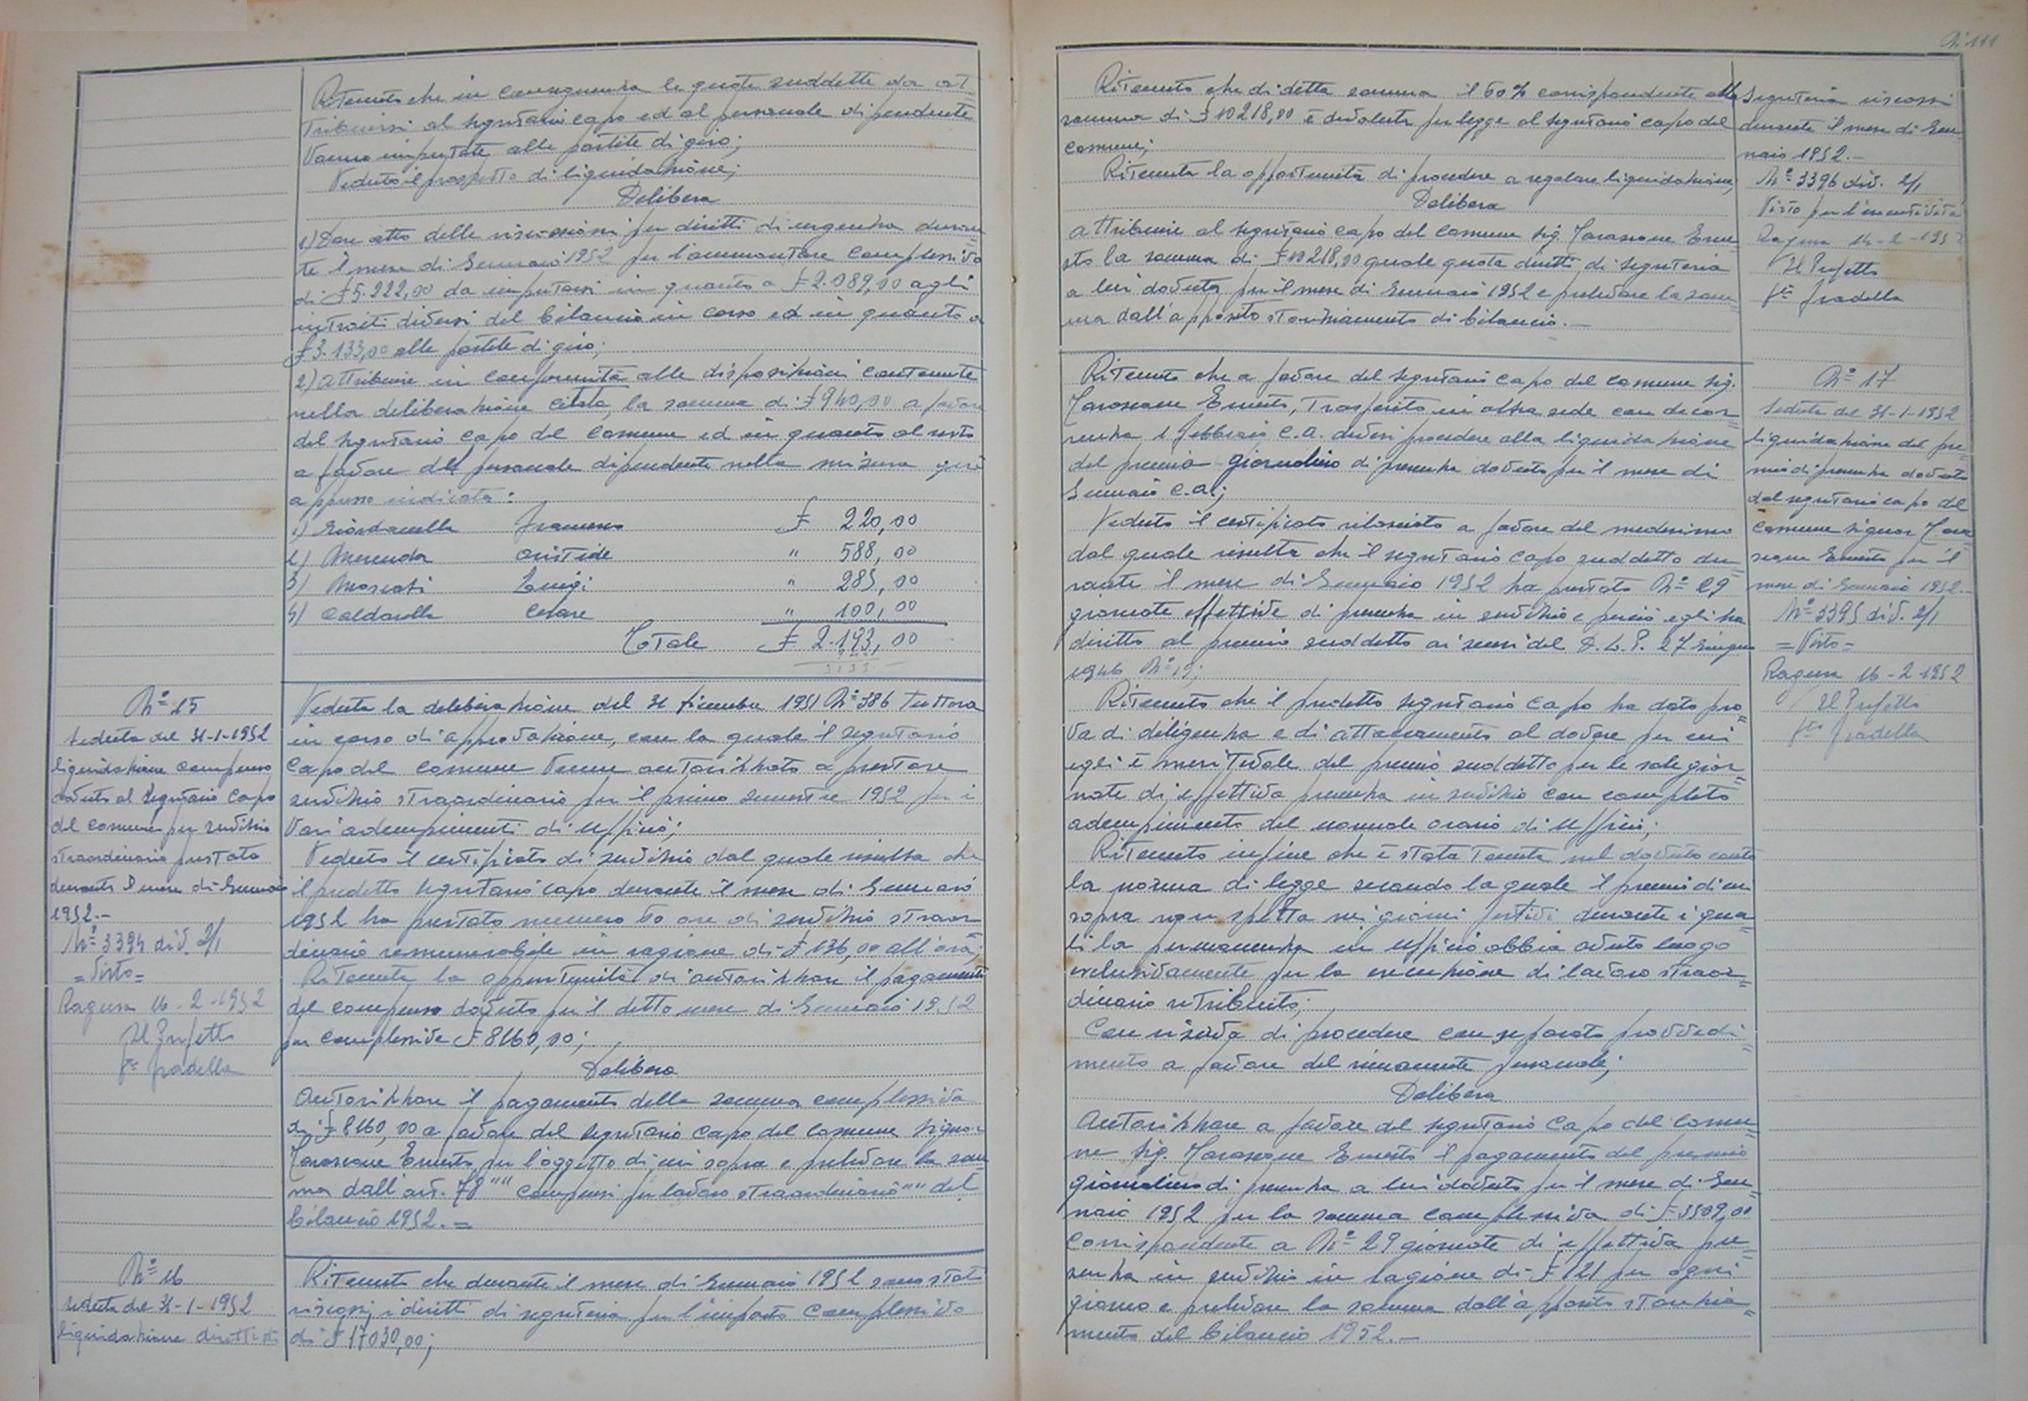 Ritenuto che in conseguenza le quote suddette da at-
tribuirsi al segretario capo ed al personale dipendente
vanno imputate alle partite di giro;
Veduto il prospetto di liquidazione;
Delibera
1) Dare atto delle riscossioni per diritti di urgenza duran-
te il mese di Gennaio 1952 per l'ammontare complessivo
di £ 5.222,00 da imputarsi in quanto a £ 2.089,00 agli
introiti diversi del bilancio in corso ed in quanto a
£ 3.133,00 alle partite di giro;
2) Attribuire in conformità alle disposizioni contenute
nella deliberazione citata, la somma di £ 940,00 a favore
del segretario capo del comune ed in quanto al resto
a favore del personale dipendente nella misura qui
appresso indicata:
1) Giordanella Francesco £ 220,00
2) Merenda Aristide " 588,00
3) Moscati Luigi " 285,00
4) Caldarella Cesare " 100,00
Totale £ 2.193,00
N° 15
Seduta del 31-1-1952
liquidazione compenso
dovuto al segretario capo
del comune per servizio
straordinario prestato
durante il mese di Gennaio
1952.-
N° 3394 div. 2/1
=Visto=
Ragusa 16-2-1952
Il Prefetto
f.to Gradella
Veduta la deliberazione del 31 dicembre 1951 N° 386 tuttora
in corso di approvazione, con la quale il segretario
capo del comune venne autorizzato a prestare
servizio straordinario per il primo semestre 1952 per i
vari adempimenti di ufficio;
Veduto il certificato di servizio dal quale risulta che
il predetto segretario capo durante il mese di Gennaio
1952 ha prestato numero 60 ore di servizio straor-
dinario remunerabile in ragione di £ 136,00 all'ora;
Ritenuta la opportunità di autorizzare il pagamento
del compenso dovuto per il detto mese di Gennaio 1952
per complessive £ 8160,00;
Delibera
Autorizzare il pagamento della somma complessiva
di £ 8160,00 a favore del segretario capo del comune Signor
Ernesto, per l'oggetto di cui sopra e prelevare la som
ma dall'art. 78 "" compensi per lavoro straordinario "" del
bilancio 1952.=
N° 16
Seduta del 31-1-1952
liquidazione diritti di
Ritenuto che durante il mese di Gennaio 1952 sono stati
riscossi i diritti di segreteria per l'importo complessivo
di £ 17030,00;
N° 111
Ritenuto che di detta somma il 60% corrispondente alla
somma di £ 10218,00 è devoluta per legge al segretario capo del
comune;
Ritenuta la opportunità di procedere a regolare liquidazione;
Delibera
Attribuire al segretario capo del comune sig. Erne-
sto la somma di £ 10218,00 quale quota diritti di segreteria
a lui dovuta per il mese di Gennaio 1952 e prelevare la som=
ma dall'apposito stanziamento di bilancio.-
Segreteria riscossi
durante il mese di Gen
naio 1952.-
N° 3396 div. 2/1
Visto per l'esecutività
Ragusa 16-2-1952
Il Prefetto
f.to Gradella
Ritenuto che a favore del segretario capo del comune sig.
Ernesto, trasferito in altra sede con decor=
renza 1 febbraio c.a. devesi procedere alla liquidazione
del premio giornaliero di presenza dovuto per il mese di
Gennaio c.a.;
Veduto il certificato rilasciato a favore del medesimo
dal quale risulta che il segretario capo suddetto du=
rante il mese di Gennaio 1952 ha prestato N° 29
giornate effettive di presenza in servizio e perciò egli ha
diritto al premio suddetto ai sensi del D.L.P. 27 Giugno
1946 N° 19;
Ritenuto che il predetto segretario capo ha dato pro=
va di diligenza e di attaccamento al dovere per cui
egli è meritevole del premio suddetto per le sole gior=
nate di effettiva presenza in servizio con completo
adempimento del normale orario di ufficio;
Ritenuto infine che è stata tenuta nel dovuto conto
la norma di legge secondo la quale il premio di cui
sopra non spetta nei giorni festivi durante i qua=
li la permanenza in ufficio abbia avuto luogo
esclusivamente per la esecuzione di lavoro straor=
dinario retribuito;
Con riserva di procedere con separato provvedi=
mento a favore del rimanente personale;
Delibera
Autorizzare a favore del segretario capo del comu=
ne sig. Ernesto il pagamento del premio
giornaliero di presenza a lui dovuto per il mese di Gen=
naio 1952 per la somma complessiva di £ 3509,00
corrispondente a N° 29 giornate di effettiva pre=
senza in servizio in ragione di £ 121 per ogni
giorno e prelevare la somma dall'apposito stanzia=
mento del bilancio 1952.-
N° 17
Seduta del 31-1-1952
liquidazione del pre=
mio di presenza dovuto
dal segretario capo del
comune signor
Ernesto per il
mese di Gennaio 1952.-
N° 3395 div. 2/1
=Visto=
Ragusa 16-2-1952
Il Prefetto
f.to Gradella